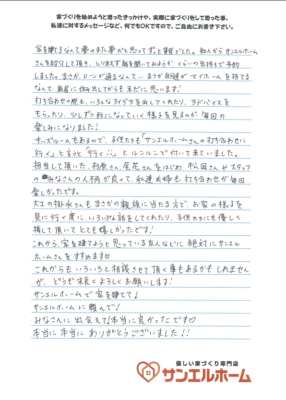 家づくりを始めようと思ったきっかけや、実際に家づくりをして思った事、
私達に対するメッセージなど、何でもOKですので、ご自由にお書き下さい。
家を建てるなんて夢のまた夢かと思ってずっと賃貸でした。知人からサンエルホーム
さんを紹介して頂き、とりあえず話を聞いてみようか、ぐらいの気持ちで予約
しました。まさか、ローンが通るなんて… まさか自分達がマイホームを持てる
なんて、新居に住み出してからも未だに思います!
打ち合わせの際も、いろんなアイデアを出してくれたり、アドバイスを
もらったり、少しずつ形になっていく様子を見るのが毎回の
楽しみになりました!
キッズルームもあるので、子供たちも「サンエルホームさんの打ち合わせに
行く」と言うと「行くー!」とルンルンで付いて来ていました。
担当して頂いた、柏原さん、尾花さんをはじめ、松田さんやスタッフ
のみなさんの人柄が良くて、私達夫婦も打ち合わせが毎回
楽しかったです。
大工の掛水さんもまさかの親族に当たる方で、お家の様子を
見に行く度に、いろいろな話をしてくれたり、子供たちにも優しく
接して頂いてとても嬉しかったです!
これから、家を建てようと思っている友人などに絶対にサンエル
ホームさんをすすめます
これからもいろいろと相談させて頂く事もあるかもしれません
が、どうぞ末長くよろしくお願いします!
サンエルホームで家を建てて♪
サンエルホームに頼んで♪
みなさんに出会えて!本当に良かったです♡
本当に本当にありがとうございました!!
楽しい家づくり専門店
サンエルホーム